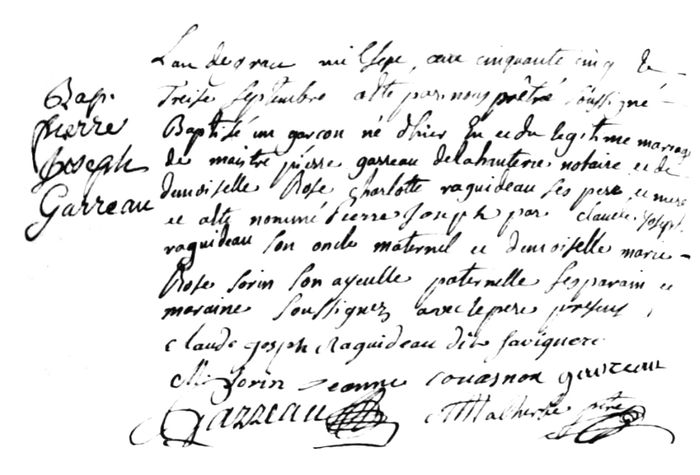 Bap.
Pierre
Joseph
Garreau
L'an de grace mil sept cent cinquante cinq le
treise septembre a été par nous prêtre soussigné
Baptisé un garçon né d'hier du legitime mariage
de maistre pierre garreau delabruterie notaire et de
demoiselle Rose Charlotte raguideau ses pere et mere
et a été nommé Pierre Joseph par claude Joseph
raguideau son oncle maternel et demoiselle marie
Rose sorin son ayeulle paternelle ses parain et
maraine soussignez avec le pere present
Claude Joseph Raguideau dit
M. Sorin Jeanne Couasnon garreau
Garreau Malherbe prtre